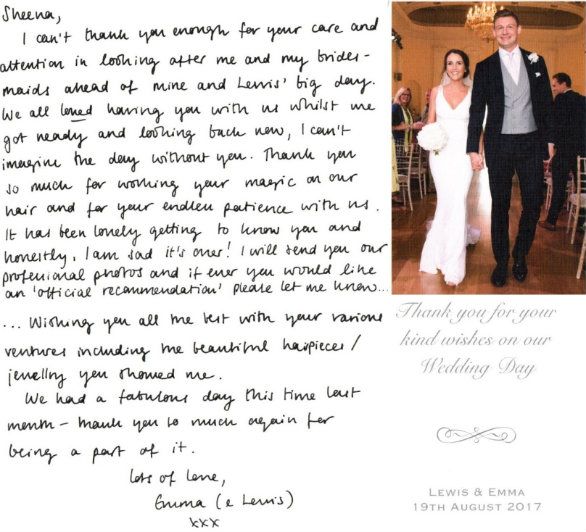 Sheena,
I can't thank you enough for your care and
attention in looking after me and my brides-
maids ahead of mine and Lewis' big day.
We all loved having you with us whilst we
got ready and looking back now, I can't
imagine the day without you. Thank you
so much for working your magic on our
hair and for your endless patience with us.
It has been lovely getting to know you and
honestly, I am sad it's over! I will send you our
professional photos and if ever you would like
an 'official recommendation' please let me know...
... Wishing you all the best with your various
ventures including the beautiful hairpieces/
jewellry you showed me.
We had a fabulous day this time last
month - thank you so much again for
being a part of it.
Lots of love,
Emma (& Lewis)
xxx
Thank you for your
kind wishes on our
Wedding Day
LEWIS & EMMA
19TH AUGUST 2017